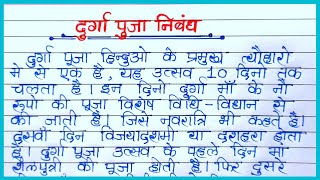 दुर्गा पुजा निबंध
दुर्गा पूजा हिन्दुओ के प्रमुख त्यौहारो
मे से एक है, यह उत्सव 10 दिनो तक
चलता है। इन दिनो दुर्गा माँ के नौ
रूपो की पूजा विशेष विधि-विधान से
की जाती है। जिसे नवरात्रि भी कहते है।
दसवाँ दिन विजयादशमी या दशहरा होता
है। दुर्गा पूजा उत्सव के पहले दिन माँ
शैलपुत्री की पूजा होती है। फिर दुसरे